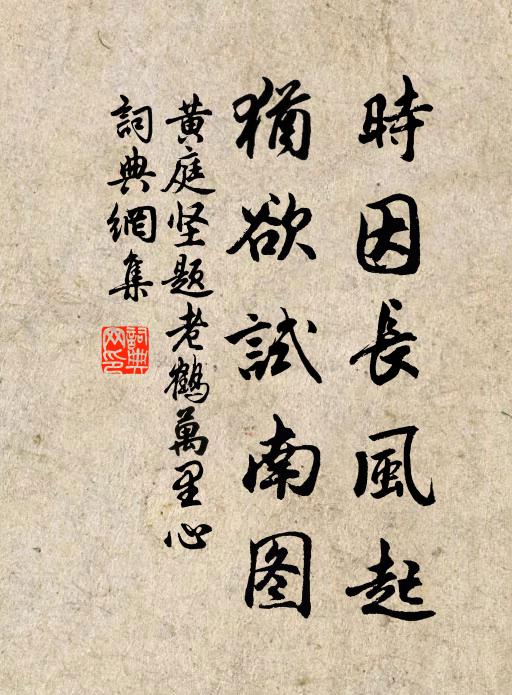 時因長風起
猶欲試南图
黄庭坚题老鶴萬里心
詞典網集
詞典
网印